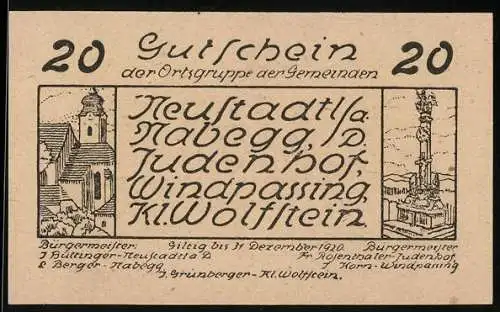 20 Gutschein 20
der Ortsgruppe der Gemeinden
Neustadtl a.
Nabegg, D.
Judenhof,
Windpassing,
Kl. Wolfstein.
Bürgermeister: Giltig bis 31 Dezember 1920. Bürgermeister
J Büttinger-Neustadtl a D Fr. Rosenthaler-Judenhof
L Berger-Nabegg J Horn-Windpassing
J. Grünberger-Kl. Wolfstein.